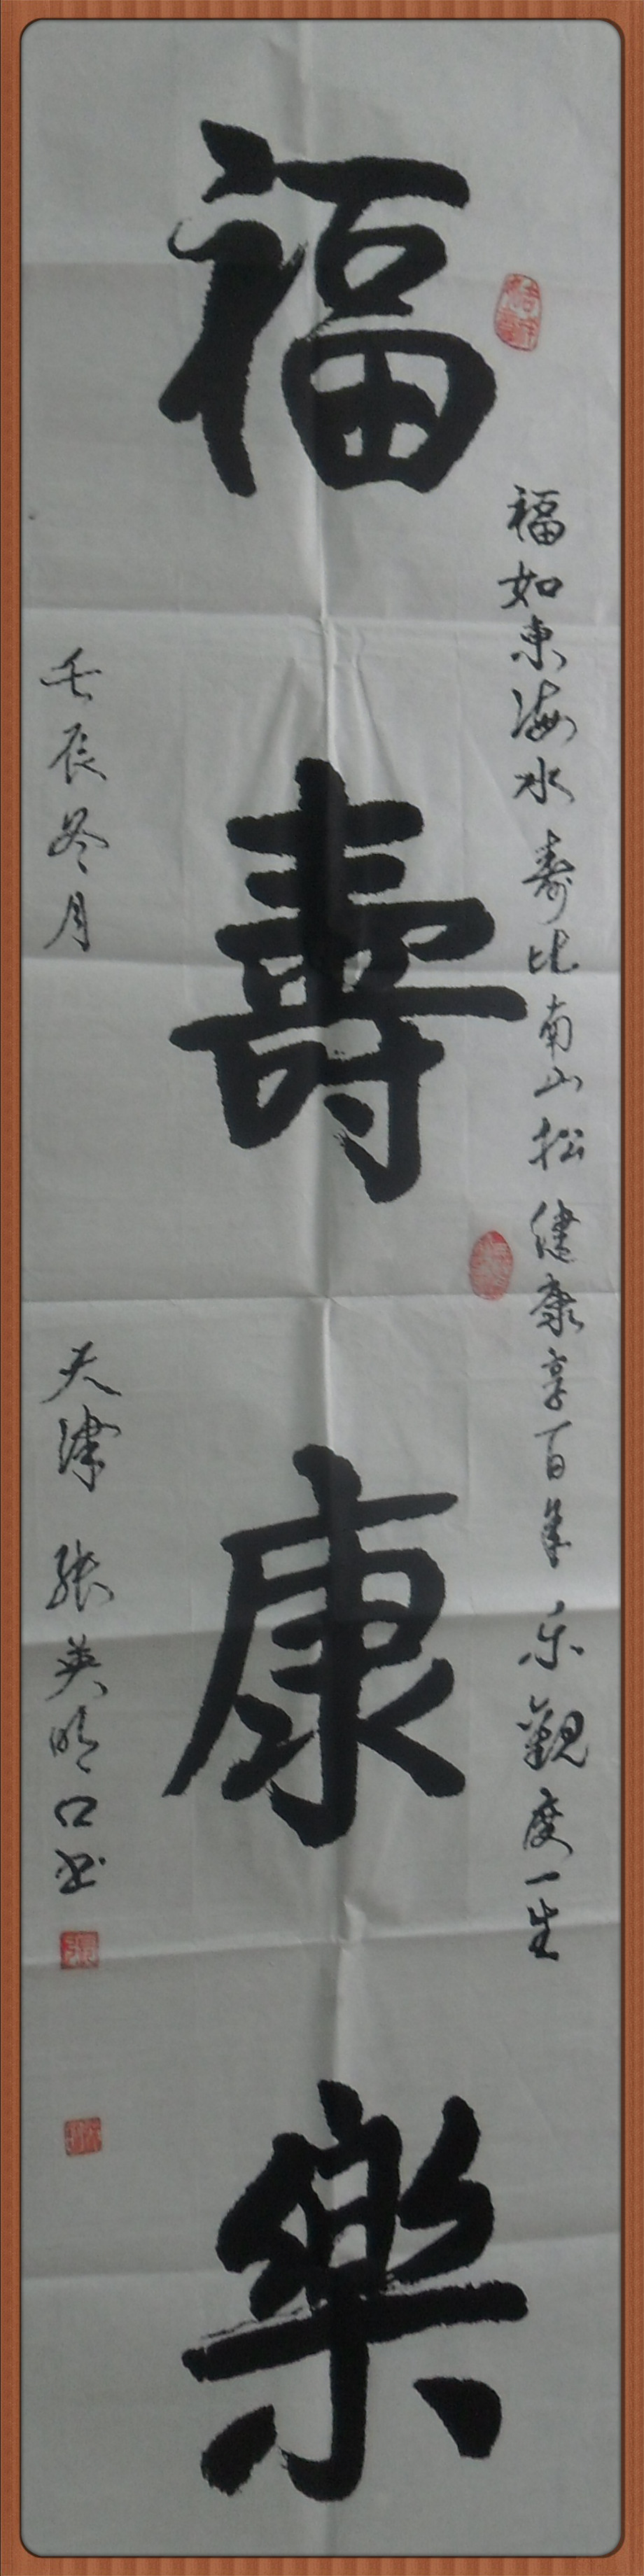 福如東海水 壽比南山松 健康享百年 乐觀度一生
福壽康樂
壬辰冬月 天津 張英明口书